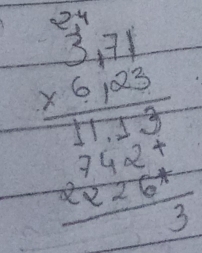 24
3,71
x 6,23
11.13
742+
2226*
3